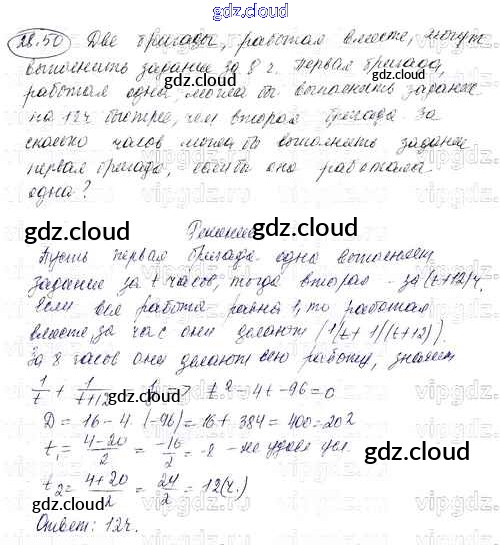 gdz.cloud
28.50 Две бригады, работая вместе, могут
выполнить задание за 8 ч. Первая бригада,
работая одна, могла бы выполнить задание
на 12ч быстрее, чем вторая бригада. За
сколько часов могла бы выполнить задание
первая бригада, если бы она работала
одна?
Решение
Пусть первая бригада одна выполняет
задание за t часов, тогда вторая - за (t+12)ч.
Если вся работа равна 1, то работая
вместе, за час они делают (1/t + 1/(t+12)).
За 8 часов они делают всю работу, значит
1/t + 1/(t+12) = 1/8 => t² - 4t - 96 = 0
D = 16 - 4·(-96) = 16 + 384 = 400 = 20²
t₁ = (4-20)/2 = -16/2 = -8 - не удовл. усл.
t₂ = (4+20)/2 = 24/2 = 12(ч.)
Ответ: 12ч.